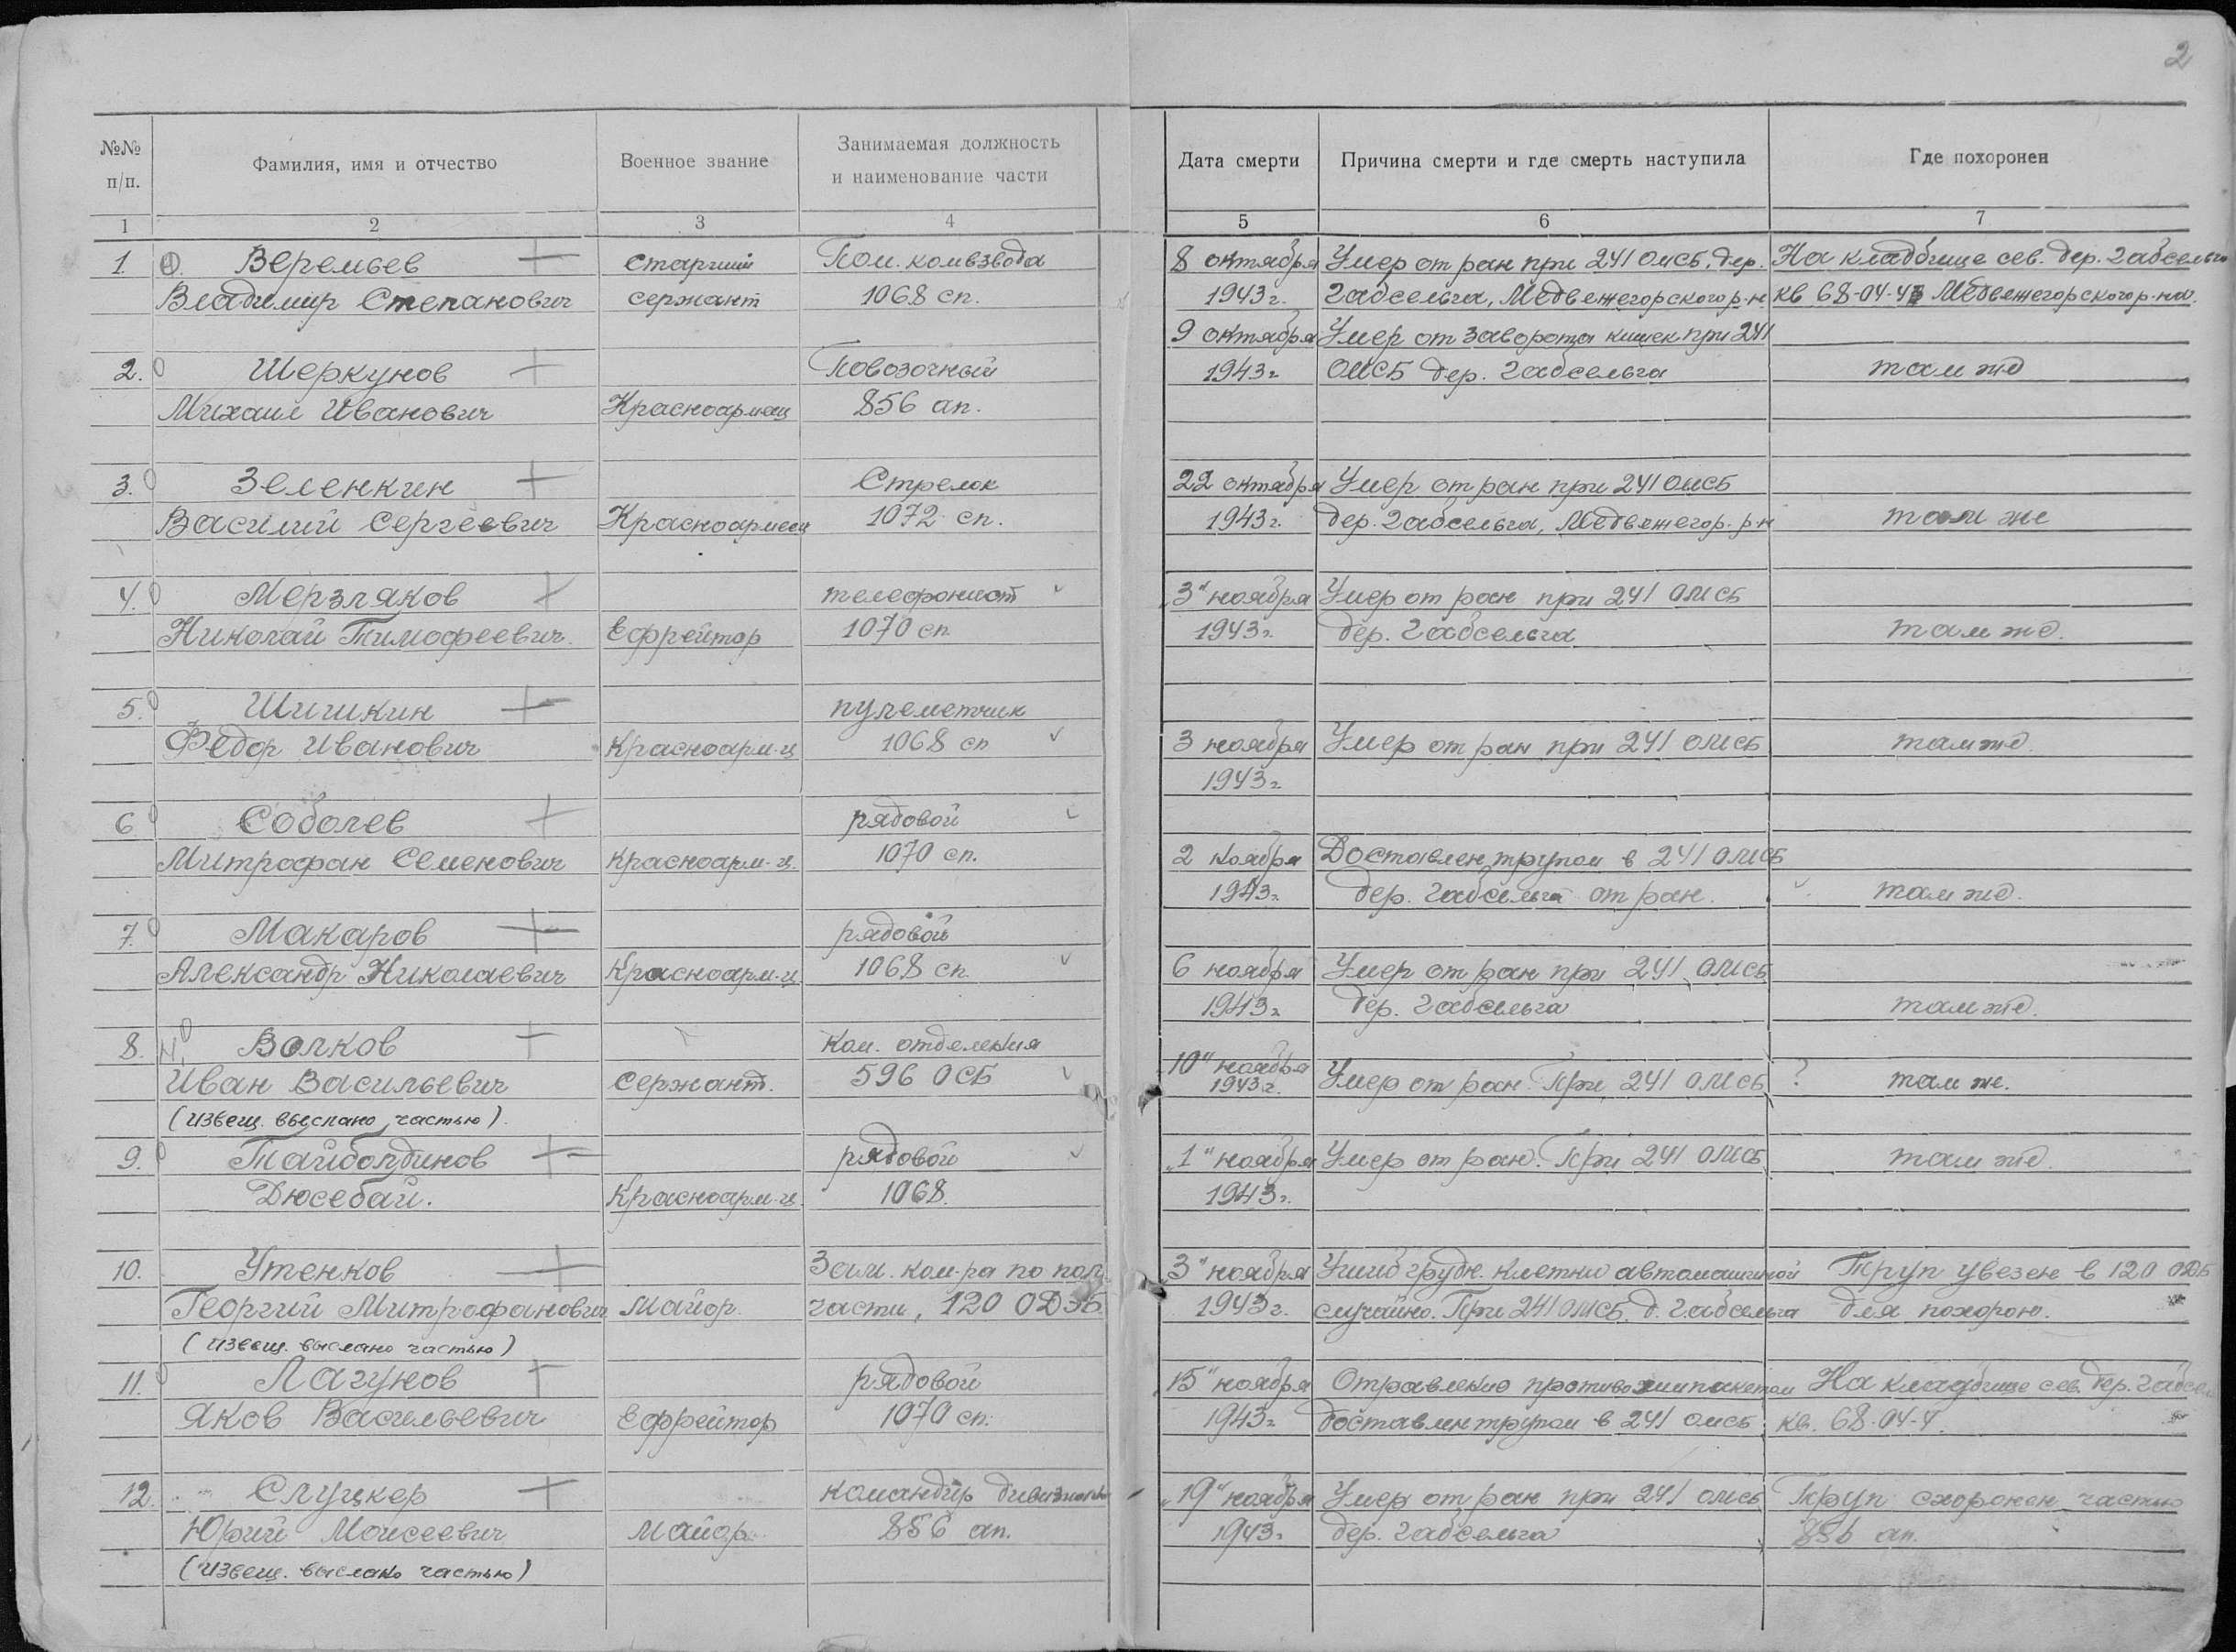 2
№№ п/п.
Фамилия, имя и отчество
Военное звание
Занимаемая должность и наименование части
Дата смерти
Причина смерти и где смерть наступила
Где похоронен
1 2 3 4 5 6 7
1. Веремьев старший Пом. комвзвода 8 октября Умер от ран при 241 ОМСБ, дер. На кладбище сев. дер. Габсельга
Владимир Степанович сержант 1068 сп. 1943 г. Габсельга, Медвежегорского р-н кв 68-04-4 Медвежегорского р-на.
9 октября Умер от заворота кишек при 241
2. Шеркунов Повозочный 1943 г ОМСБ дер. Габсельга там же
Михаил Иванович Красноармец 856 ап.
3. Зеленкин Стрелок 22 октября Умер от ран при 241 ОМСБ
Василий Сергеевич Красноармеец 1072 сп. 1943 г. дер. Габсельга, Медвежегор. р-н там же
4. Мерзляков телефонист "3" ноября Умер от ран при 241 ОМСБ
Николай Тимофеевич. Ефрейтор 1070 сп 1943 г. дер. Габсельга там же.
5. Шишкин пулеметчик
Федор Иванович Красноарм-ц 1068 сп 3 ноября Умер от ран при 241 ОМСБ там же.
1943 г
6 Соболев рядовой
Митрофан Семенович Красноарм-ц. 1070 сп. 2 ноября Доставлен трупом в 241 ОМСБ
1943 г. дер. Габсельга от ран. там же.
7. Макаров рядовой
Александр Николаевич Красноарм-ц. 1068 сп. 6 ноября Умер от ран при 241 ОМСБ
1943 г дер. Габсельга там же.
8. Волков Ком. отделения
Иван Васильевич Сержант. 596 ОСБ 10" ноября 1943 г. Умер от ран. При 241 ОМСБ ? там же.
(извещ. выслано частью).
9. Тайболдинов рядовой "1" ноября Умер от ран. При 241 ОМСБ там же.
Дюсебай. Красноарм-ц. 1068. 1943 г.
10. Утенков Зам. ком-ра по пол. "3" ноября Ушиб грудн. клетки автомашиной Труп увезен в 120 ОДЭБ
Георгий Митрофанович Майор. части, 120 ОДЭБ. 1943 г. случайно. При 241 ОМСБ. д. Габсельга для похорон.
(извещ. выслано частью)
11. Лагунов рядовой "15" ноября Отравление противохимпакетом На кладбище сев. дер. Габсель
Яков Васильевич Ефрейтор 1070 сп. 1943 г доставлен трупом в 241 ОМСБ. кв. 68-04-4.
12. Слуцкер командир дивизиона "19" ноября Умер от ран при 241 ОМСБ Труп схоронен частью
Юрий Моисеевич Майор. 856 ап. 1943 г дер. Габсельга 856 ап.
(извещ. выслано частью)